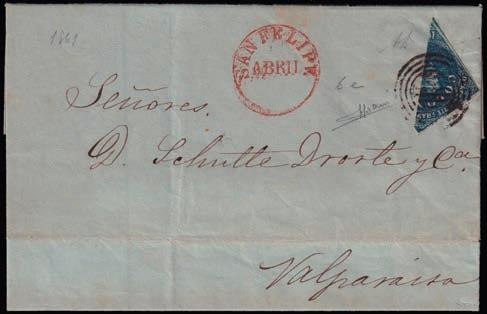 1861
SAN FELIPE
ABRIL
6 c
Señores.
D. Schutte Droste y Ca.
Valparaiso